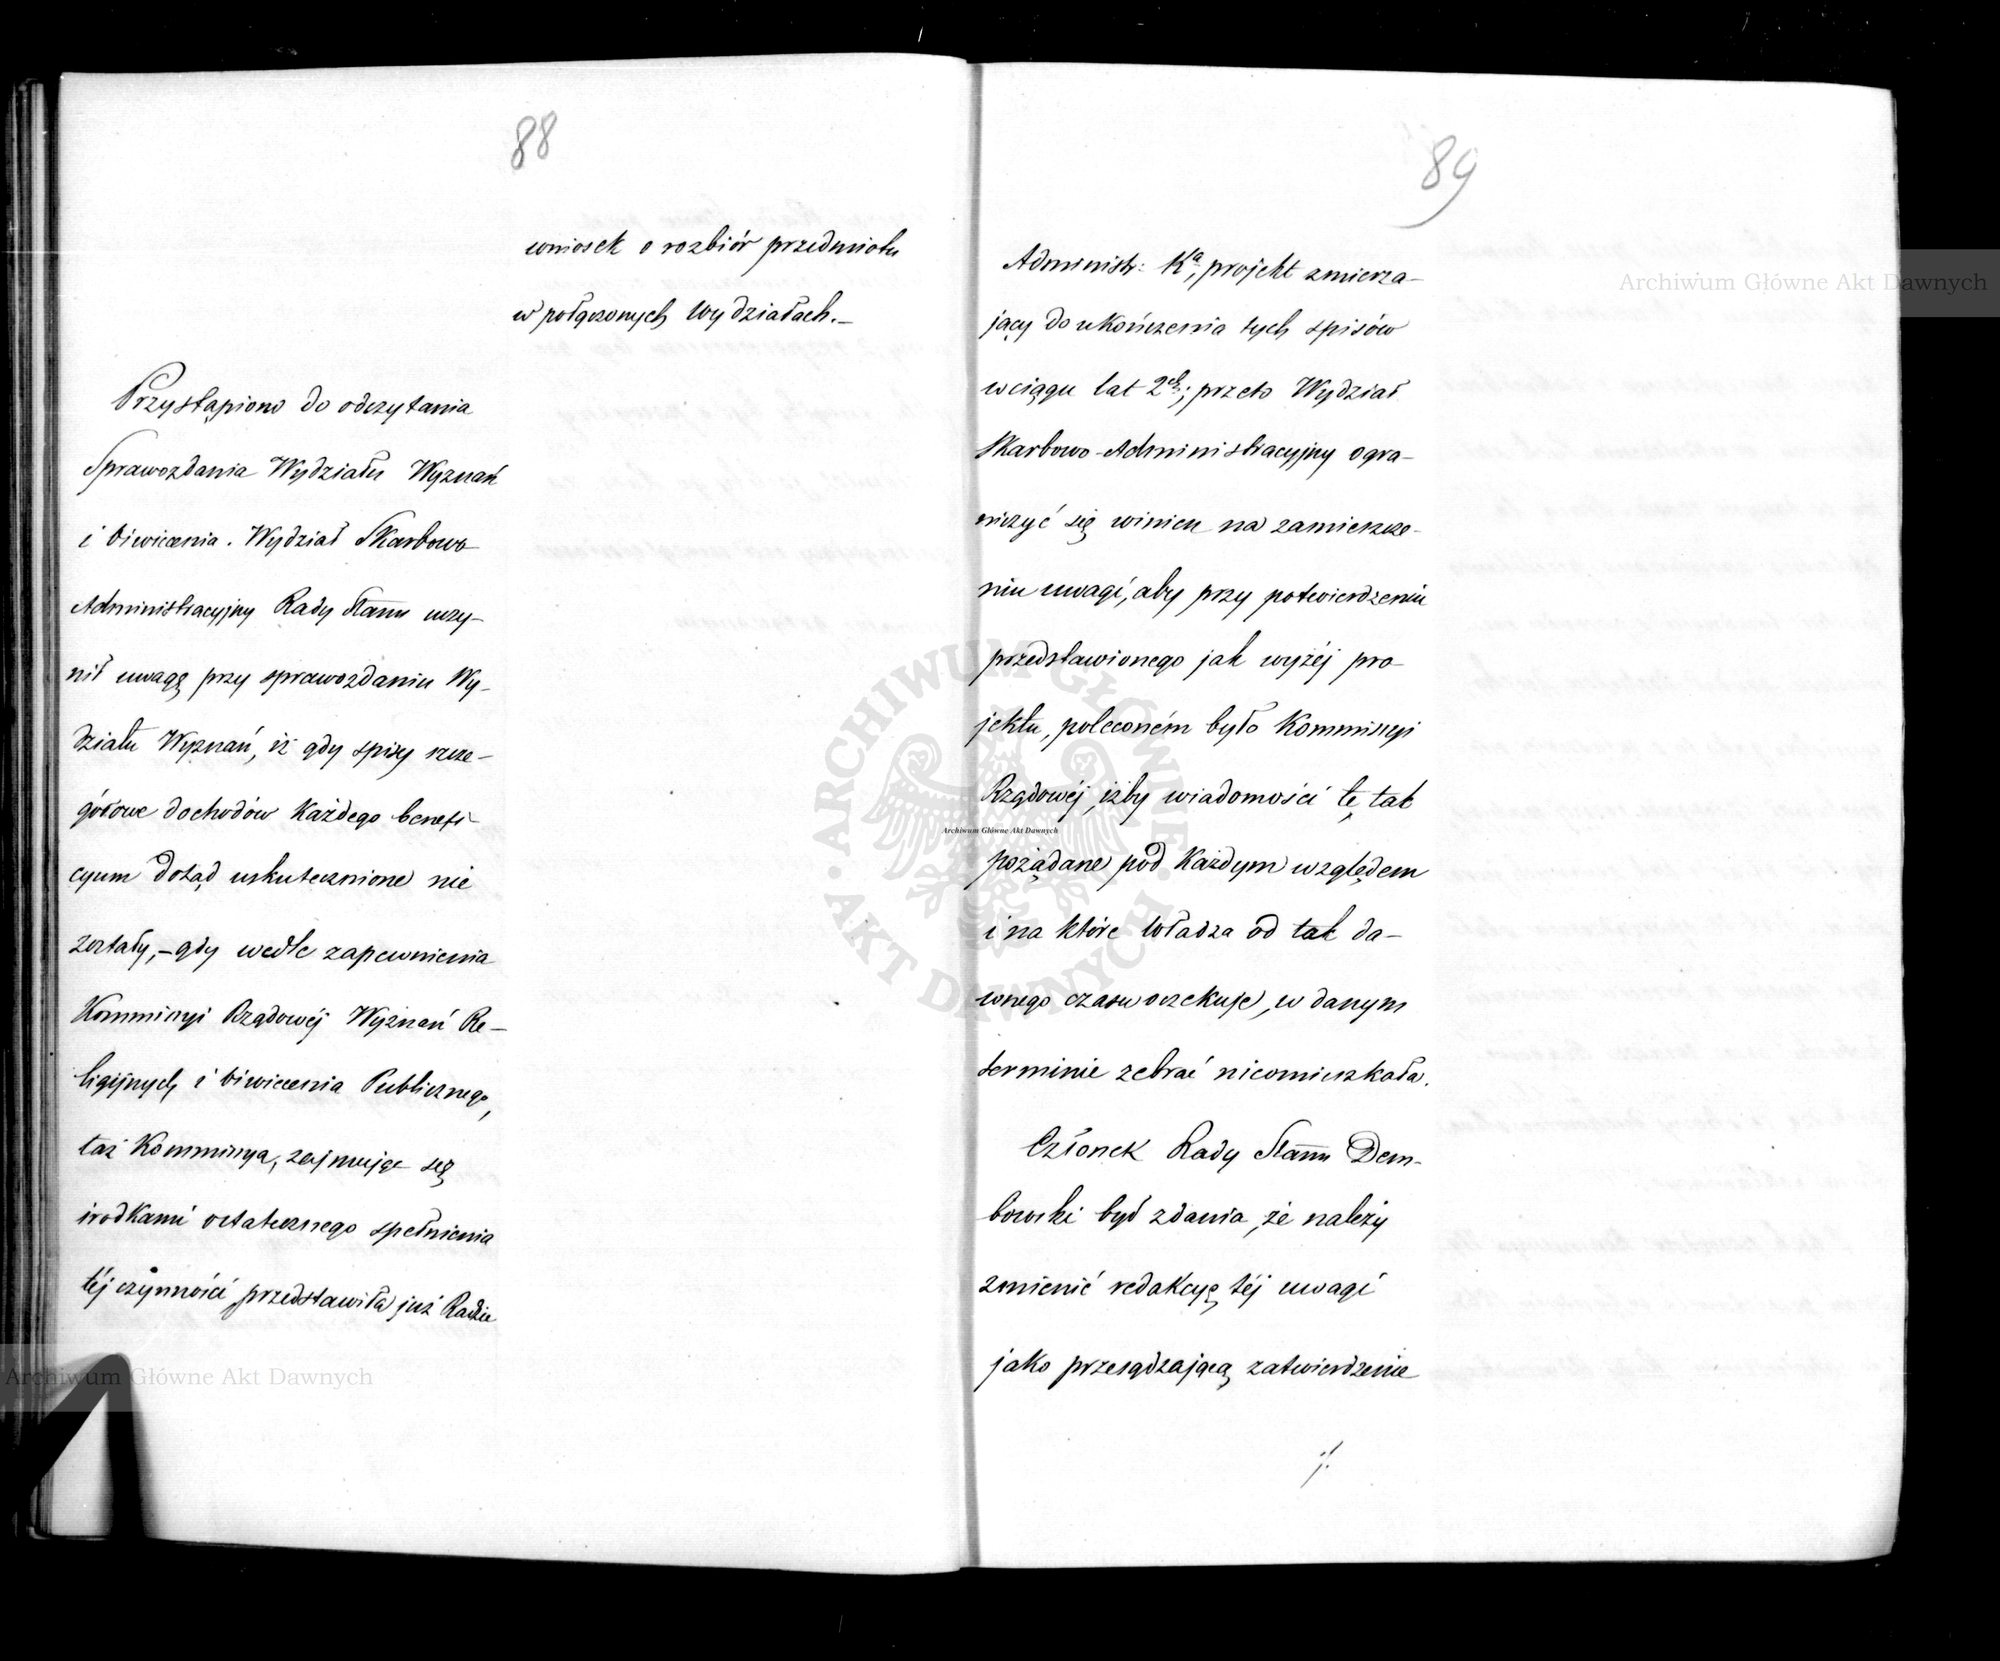 88
wniosek o rozbiór przedmiotu
w połączonych Wydziałach.—
Przystąpiono do odczytania
Sprawozdania Wydziału Wyznań
i Oświecenia. Wydział Skarbowo
Administracyjny Rady Stanu uczy-
nił uwagę przy sprawozdaniu Wy-
działu Wyznań, iż gdy spisy szcze-
gółowe dochodów każdego benefi-
cyum dotąd uskutecznione nie
zostały,- gdy wedle zapewnienia
Kommissyi Rządowéj Wyznań Re-
ligijnych i Oświecenia Publicznego,
taż Kommissya, zajmując się
środkami ostatecznego spełnienia
téj czynności przedstawiła już Radzie
89
Administr: Kª, projekt zmierza-
jący do ukończenia tych spisów
w ciągu lat 2ch; przeto Wydział
Skarbowo-Administracyjny ogra-
niczyć się winien na zamieszcze-
niu uwagi, aby przy potwierdzeniu
przedstawionego jak wyżéj pro-
jektu, poleconém było Kommissyi
Rządowéj, iżby wiadomości te, tak
pożądane pod każdym względem
i na które Władza od tak da-
wnego czasu oczekuje, w danym
terminie zebrać nieomieszkała.
Członek Rady Stanu Dem-
bowski był zdania, że należy
zmienić redakcyę téj uwagi
jako przesądzającą zatwierdzenie
./.
Archiwum Główne Akt Dawnych
ARCHIWUM GŁÓWNE · AKT DAWNYCH ·
Archiwum Główne Akt Dawnych
Archiwum Główne Akt Dawnych